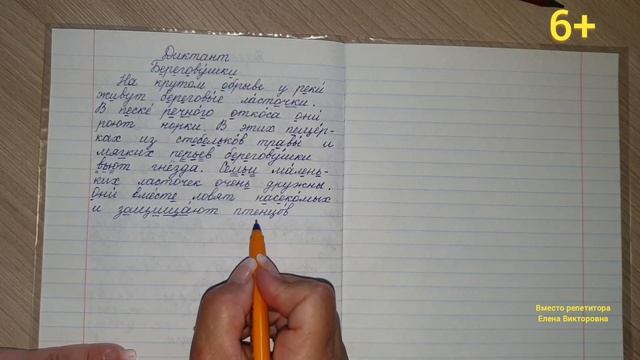 6+
Диктант
Береговушки
На крутом обрыве у реки
живут береговые ласточки.
В песке речного откоса они
роют норки. В этих пещер-
ках из стебельков травы и
мягких перьев береговушки
вьют гнёзда. Семьи малень-
ких ласточек очень дружны.
Они вместе ловят насекомых
и защищают птенцов
Вместо репетитора
Елена Викторовна